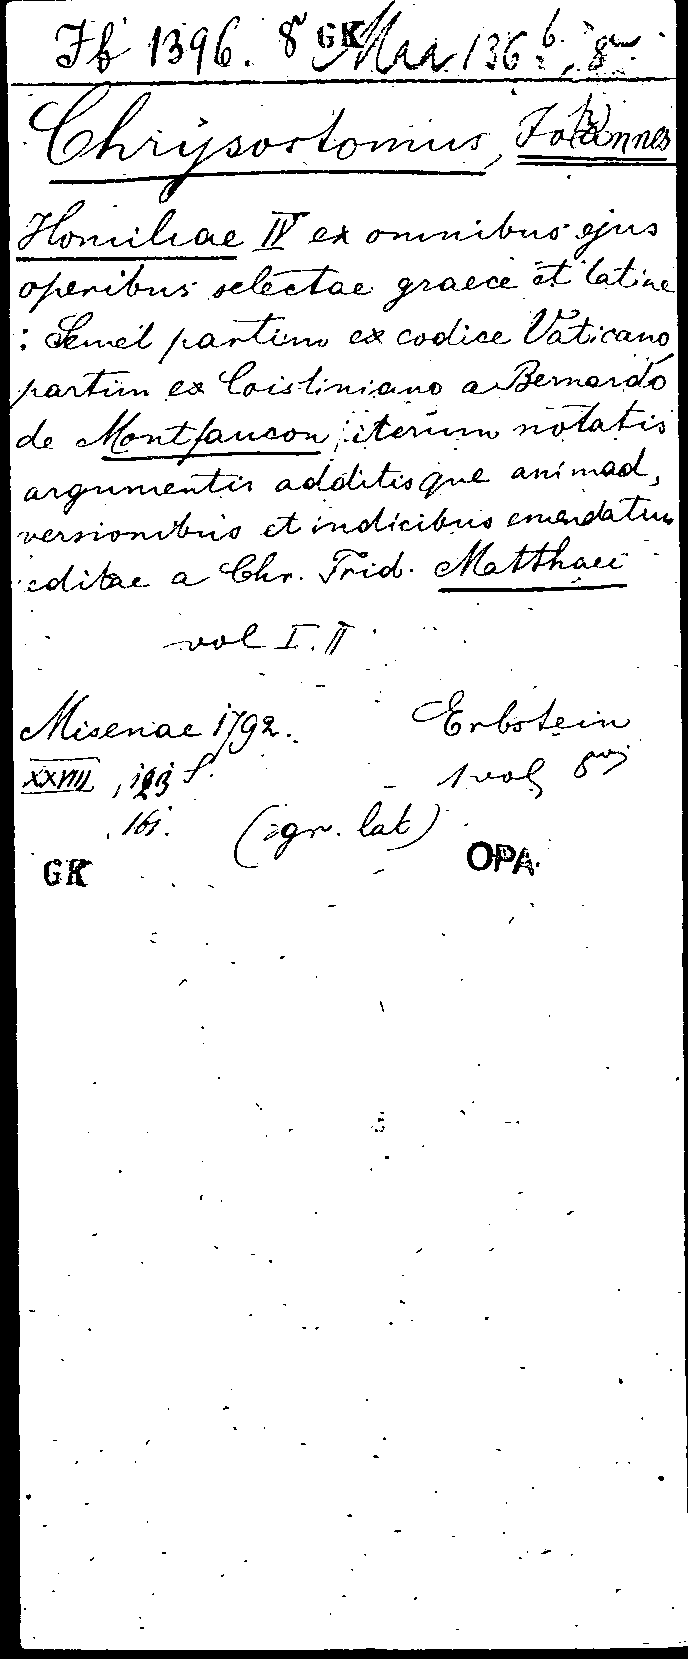 Fb 1396. 8 GK Maa 136 b, 8
Chrysostomus, Johannes
Homiliae IV ex omnibus ejus
operibus selectae graece et latine
: Semel partim ex codice Vaticano
partim ex Coisliniano a Bernardo
de Montfaucon, iterum notatis
argumentis additisque animad,
versionibus et indicibus emendatius
editae a Chr. Frid. Matthaei
vol I. II
Misenae 1792. Erbstein
XXVIII, 193 S. 1 vol 8vi
, 161. (gr. lat)
GK OPA.